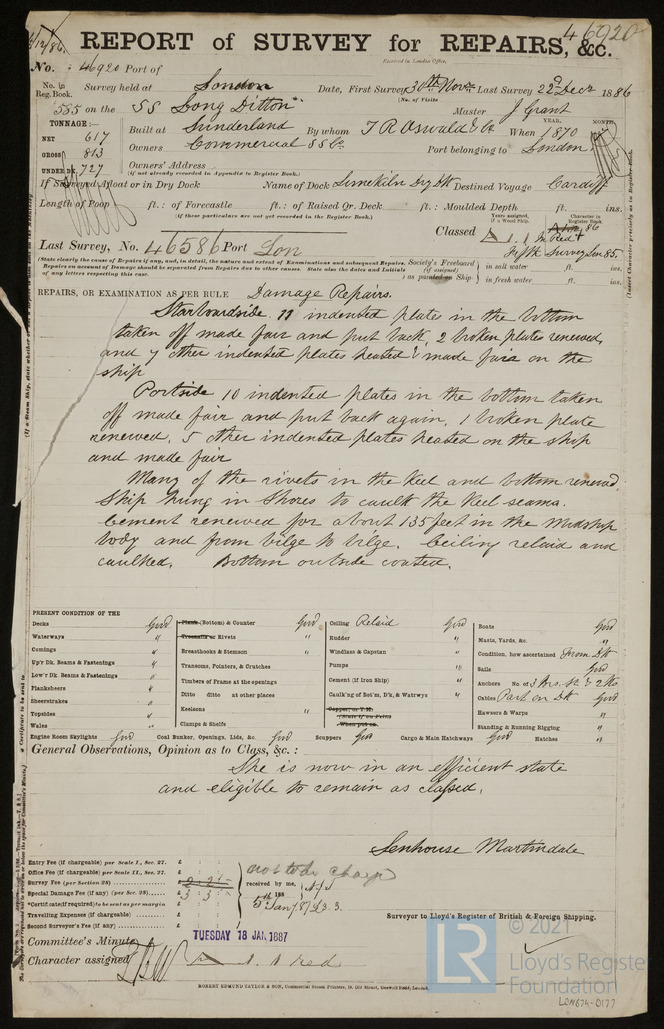 46920
REPORT of SURVEY for REPAIRS, &c.
Received in London Office,
No. 46920 Port of
No. in Reg. Book. Survey held at London Date, First Survey 30th Novr Last Survey 22d Decr 1886
(No. of Visits
585 on the SS "Long Ditton" Master J Grant
TONNAGE:— YEAR. MONTH.
NET 617 Built at Sunderland By whom T R Oswald & Co When 1870
GROSS 813 Owners Commercial SS Co. Port belonging to London
UNDER DK. 727 Owners' Address
(if not already recorded in Appendix to Register Book.)
If Surveyed Afloat or in Dry Dock Name of Dock Limekiln Dry Dk Destined Voyage Cardiff
Length of Poop ft.: of Forecastle ft.: of Raised Qr. Deck ft.: Moulded Depth ft. ins.
(if these particulars are not yet recorded in the Register Book.)
Years assigned, if a Wood Ship. Character in Register Book
Classed A.1. Red
Last Survey, No. 46586 Port Lon
(State clearly the cause of Repairs if any, and, in detail, the nature and extent of Examinations and subsequent Repairs.
Repairs on account of Damage should be separated from Repairs due to other causes. State also the dates and Initials
of any letters respecting this case.
Society's Freeboard (if assigned) as painted on Ship
in salt water ft. ins.
in fresh water ft. ins.
REPAIRS, OR EXAMINATION AS PER RULE Damage Repairs.
Starboardside 11 indented plates in the bottom
taken off made fair and put back, 2 broken plates renewed,
and 7 other indented plates heated & made fair on the
ship
Portside 10 indented plates in the bottom taken
off made fair and put back again, 1 broken plate
renewed, 5 other indented plates heated on the ship
and made fair
Many of the rivets in the keel and bottom renewed
Ship hung in shores to caulk the keel seams.
Cement renewed for about 135 feet in the midship
body and from bilge to bilge. Ceiling relaid and
caulked. Bottom outside coated.
PRESENT CONDITION OF THE
Decks Good
Waterways "
Comings "
Upr Dk. Beams & Fastenings "
Low'r Dk. Beams & Fastenings "
Planksheers "
Sheerstrakes "
Topsides "
Wales "
Plank (Bottom) & Counter Good
Treenails or Rivets "
Breasthooks & Stemson "
Transoms, Pointers, & Crutches
Timbers of Frame at the openings
Ditto ditto at other places
Keelsons "
Clamps & Shelfs
Ceiling Relaid Good
Rudder "
Windlass & Capstan "
Pumps "
Cement (if Iron Ship) "
Caulk'ng of Bot'm, D'k, & Watrwys "
Copper, or Y.M.
(State if on Felt)
When put on
Boats Good
Masts, Yards, &c. "
Condition, how ascertained From Dk
Sails Good
Anchors No. of
Cables Part on Dk Good
Hawsers & Warps "
Standing & Running Rigging "
Engine Room Skylights Good Coal Bunker, Openings, Lids, &c. Good Scuppers Good Cargo & Main Hatchways Good Hatches "
General Observations, Opinion as to Class, &c.:
She is now in an efficient state
and eligible to remain as classed.
Senhouse Martindale
Surveyor to Lloyd's Register of British & Foreign Shipping.
Entry Fee (if chargeable) per Scale I., Sec. 27. £
Office Fee (if chargeable) per Scale II., Sec. 27. £
Survey Fee (per Section 28) £ 2 2
Special Damage Fee (if any) (per Sec. 28) £ 3 3
*Certificate (if required) to be sent as per margin
Travelling Expenses (if chargeable) £
Second Surveyor's Fee (if any) £
not to be charged
received by me,
5th Jan 1887 £3.3.
Committee's Minute TUESDAY 18 JAN. 1887
Character assigned A. 1 Red
ROBERT EDMUND TAYLOR & SON, Commercial Steam Printers, 19, Old Street, Goswell Road, London.
© 2021
LR
Lloyd's Register
Foundation
LON674-0177